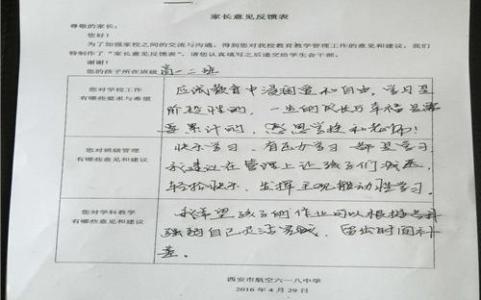 家长意见反馈表
尊敬的家长：
您好！
为了加强家校之间的交流与沟通，得到您对我校教育教学管理工作的意见和建议，我们
特制作了“家长意见反馈表”，请您认真填写之后递交给学生会干部。
谢谢！
您的孩子所在班级 高一二班
您对学校工作
有哪些要求与希望
应试教育中 和自由，学习是
阶段性的，一生的成长与幸福是需
要累计的，感恩学校和老师！
您对班级管理
有哪些意见和建议
快乐学习、有压力学习都是学习
我建议在管理上让孩子们减压，
轻松快乐、发挥主观能动性学习。
您对学科教学
有哪些意见和建议
我希望孩子的作业可以根据
自己 ，留出时间补
差。
西安市航空六一八中学
2016年4月29日